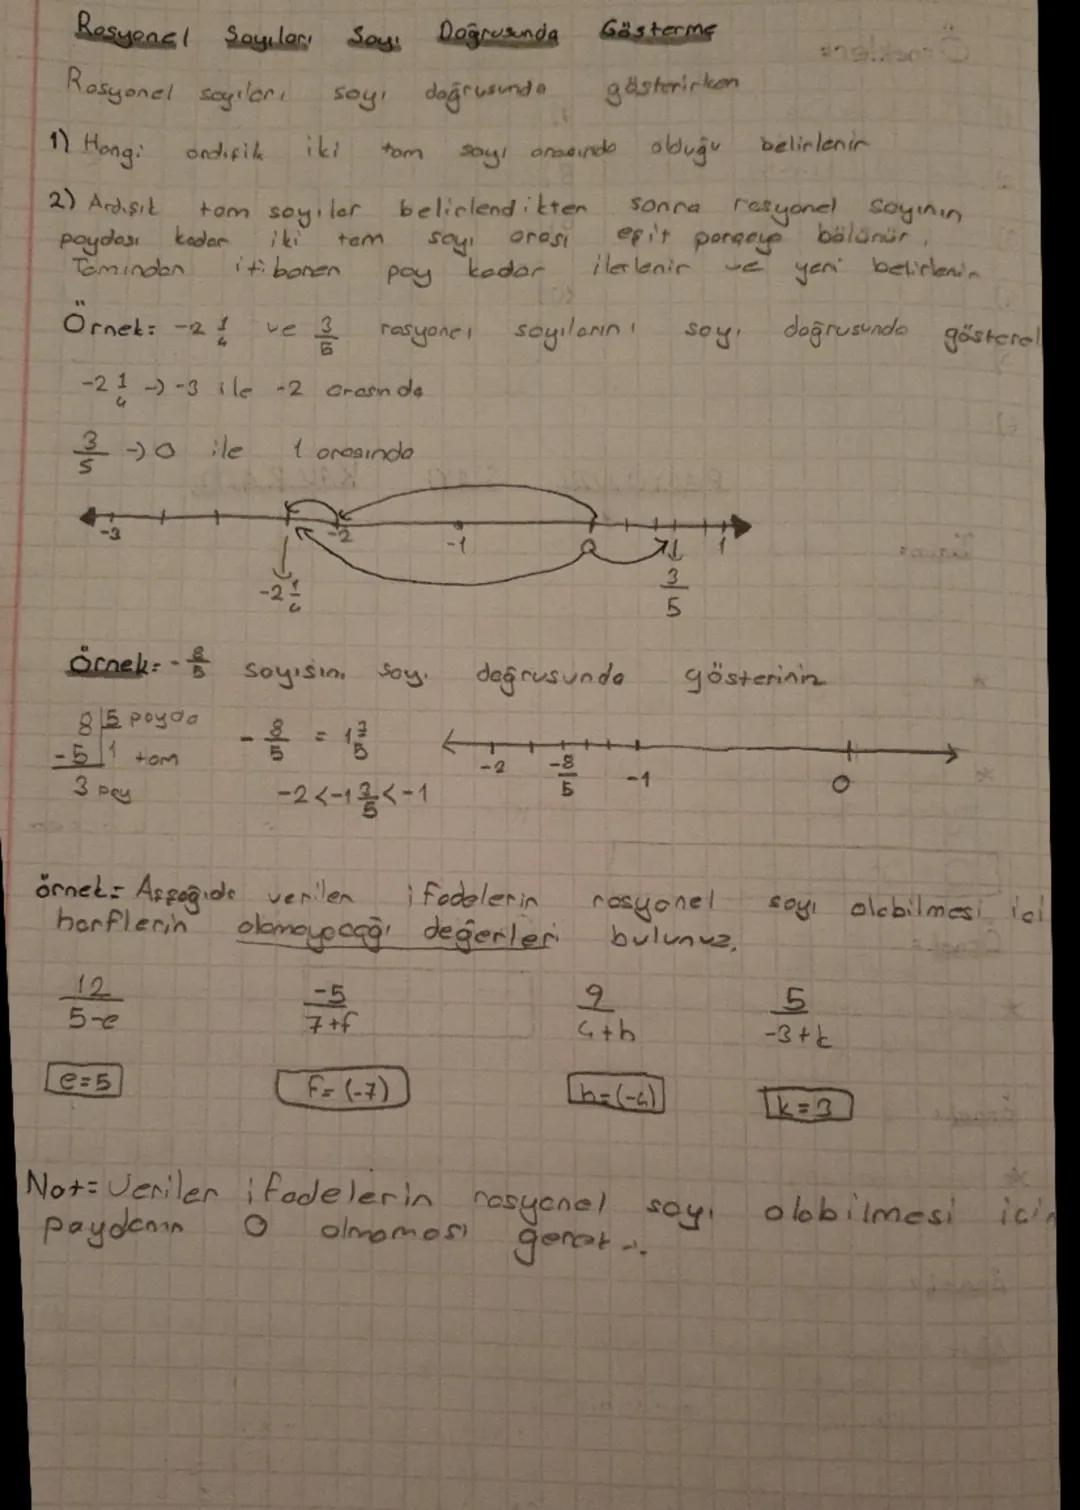 Rasyonel Sayıları Sayı Doğrusunda Gösterme
Rasyonel sayıları sayı doğrusunda gösterirken
1) Hangi ardışık iki tam sayı arasında olduğu belirlenir
2) Ardışık tam sayılar belirlendikten sonra rasyonel sayının
paydası kadar iki tam sayı arası eşit parçaya bölünür.
Tamından itibaren pay kadar ilerlenir ve yeri belirlenir
Örnek: -2 1/4 ve 3/5 rasyonel sayılarını sayı doğrusunda gösterel
-2 1/4 -> -3 ile -2 arasında
3/5 -> 0 ile 1 arasında
-3 -2 -1 0 1
-2 1/4 3/5
Örnek: -8/5 sayısını sayı doğrusunda gösteriniz
8 | 5 payda
-5 | 1 tam
3 pay
-8/5 = 1 3/5
-2 < -1 3/5 < -1
-2 -8/5 -1 0
örnek= Aşşağıda verilen ifadelerin rasyonel sayı olabilmesi içi
harflerin olamayacağı değerleri bulunuz.
12/5-e -5/7+f 9/4+h 5/-3+k
e=5 f=(-7) h=(-4) k=3
Not= Verilen ifadelerin rasyonel sayı olabilmesi için
paydanın 0 olmaması gerek..